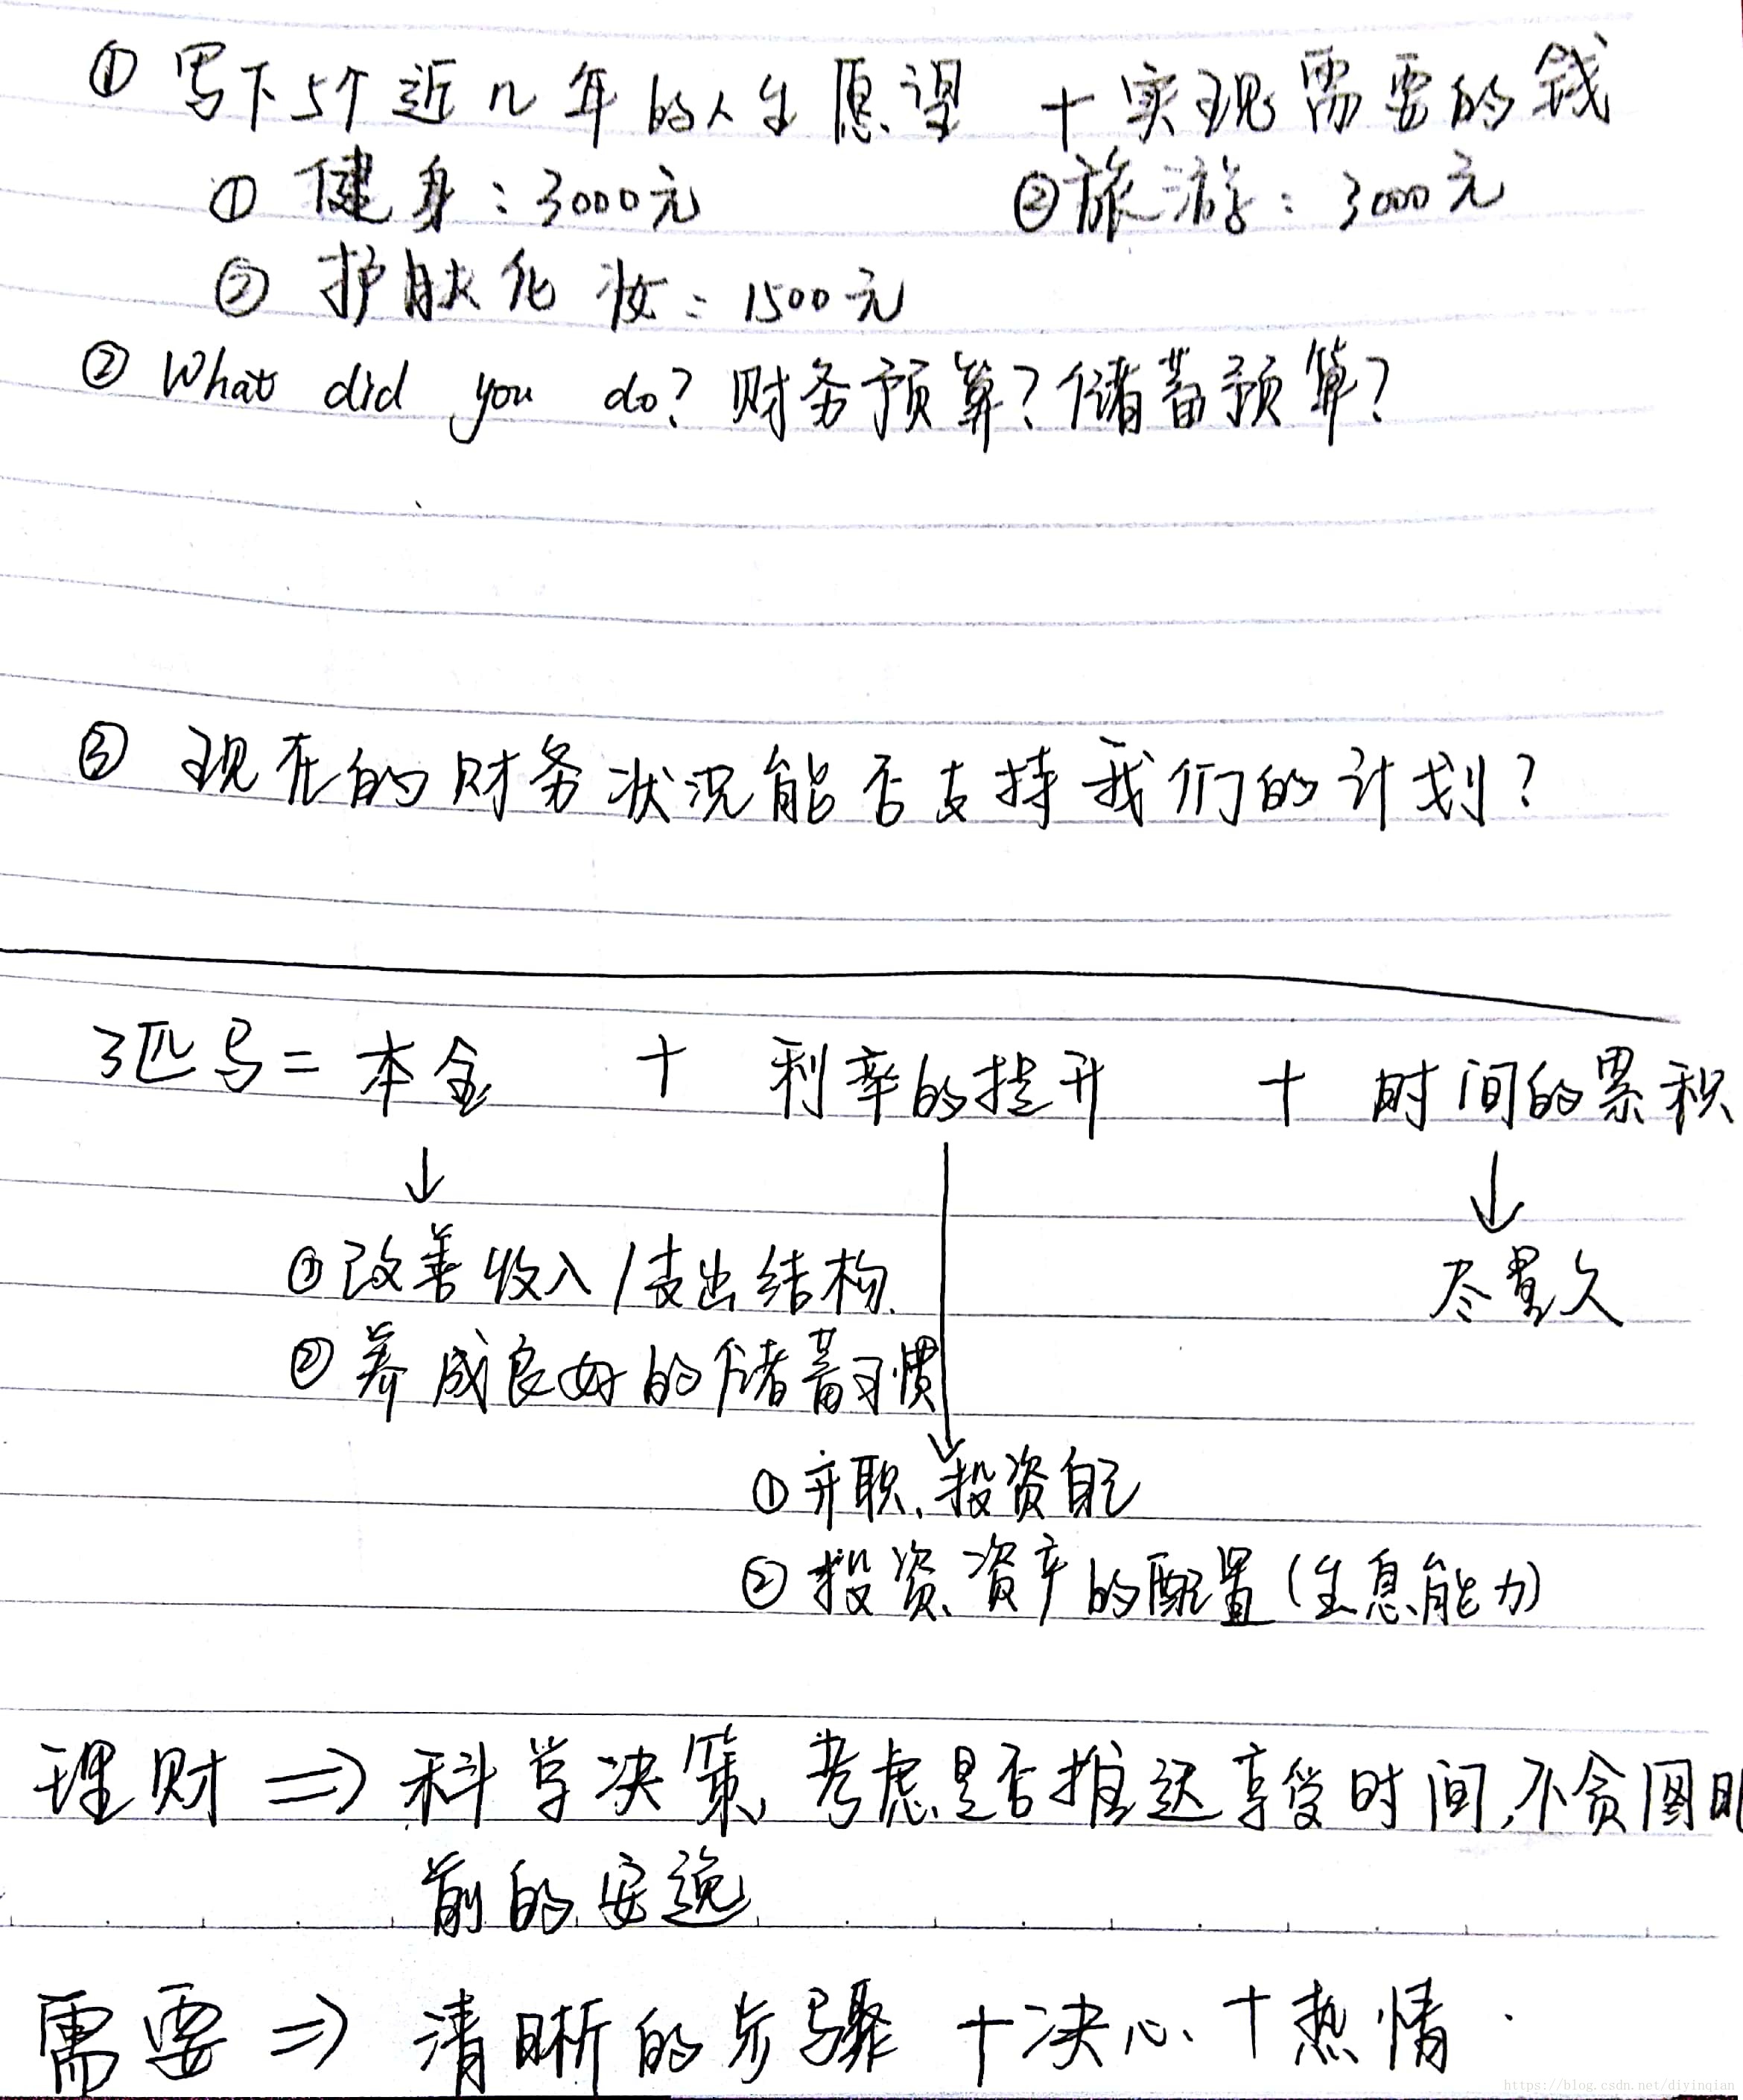 ① 写下5个近几年的人生愿望 + 实现需要的钱
① 健身：3000元 ② 旅游：3000元
③ 护肤化妆：1500元
② What did you do? 财务预算？储蓄预算？
③ 现在的财务状况能否支持我们的计划？
3匹马 = 本金 + 利率的提升 + 时间的累积
↓ ↓ ↓
① 改善收入/支出结构. 尽量久
② 养成良好的储蓄习惯
① 升职、投资自己
② 投资、资产的配置(生息能力)
理财 => 科学决策, 考虑是否推迟享受时间,不贪图眼
前的安逸
需要 => 清晰的步骤 + 决心 + 热情.
https://blog.csdn.net/divinqian